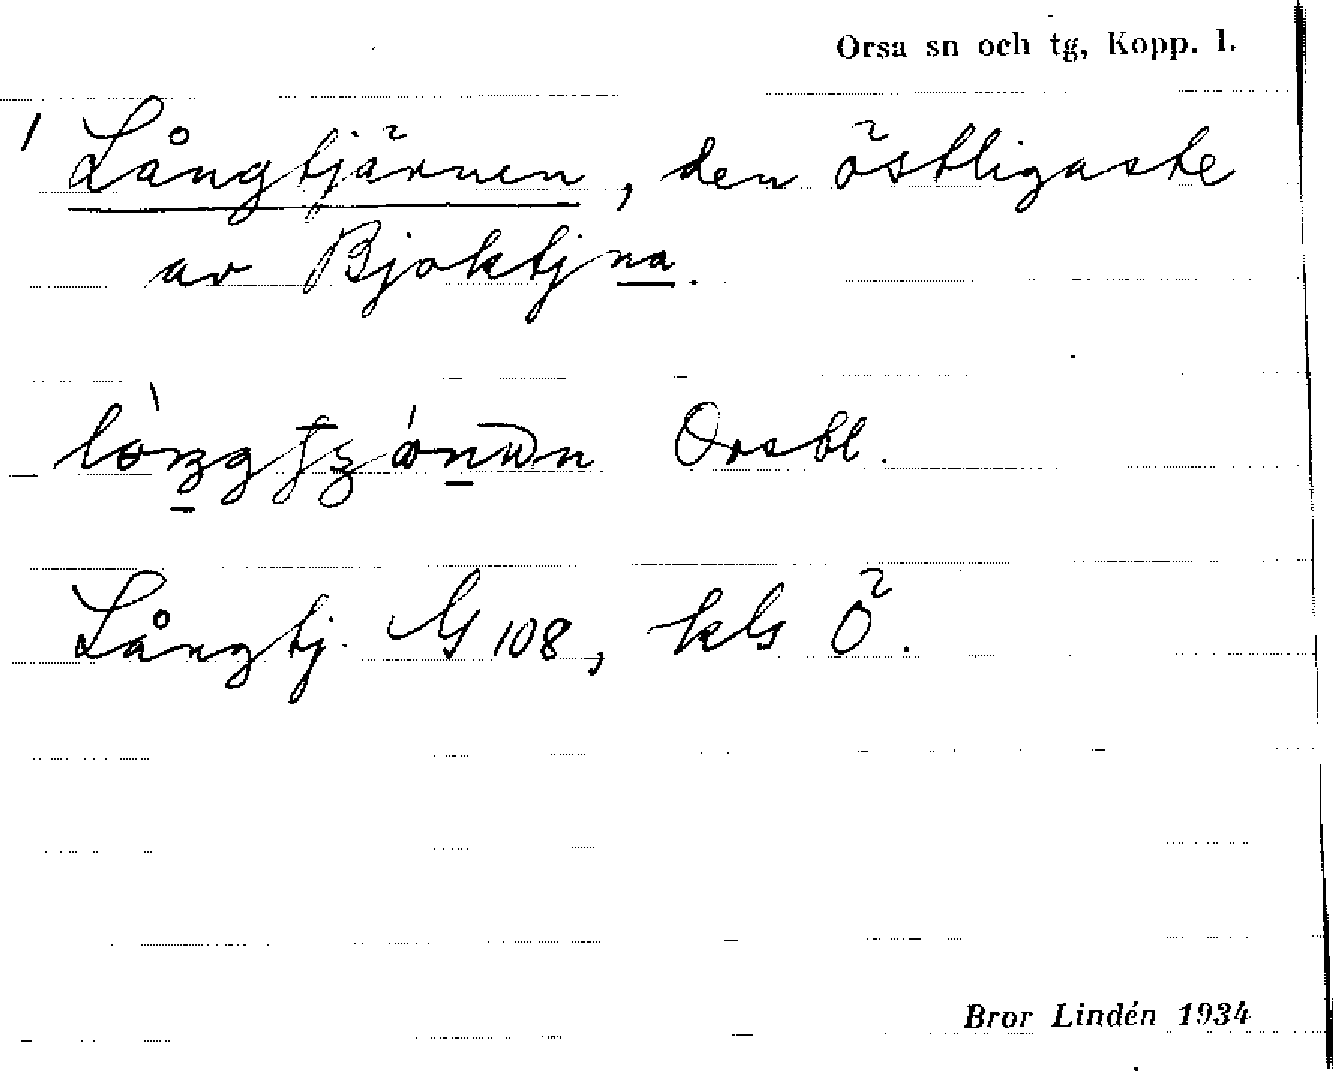 Orsa sn och tg, Kopp. l.
/ Långtjärnen, den östligaste
av Bjoktjna.
Orsbl.
Långtj. G 108, kls Ö.
Bror Lindén 1934